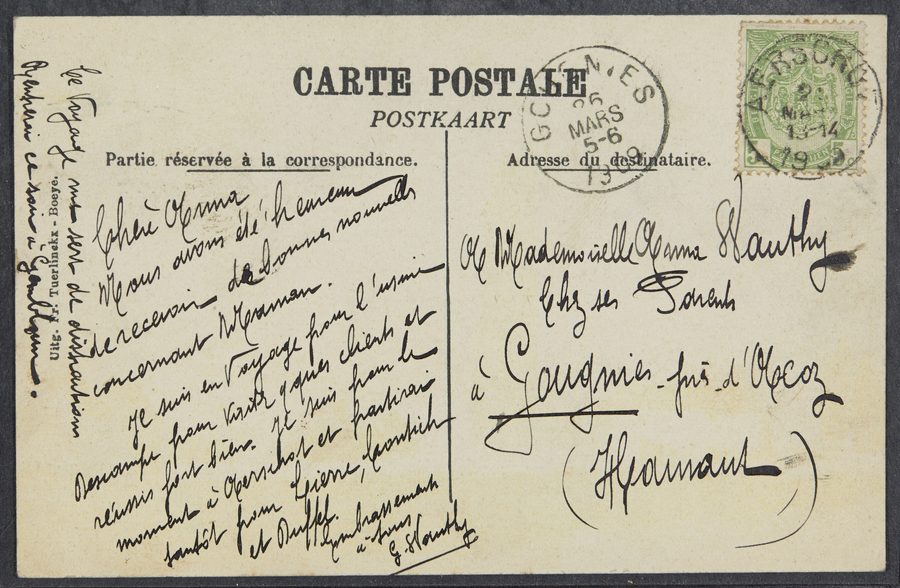 CARTE POSTALE
POSTKAART
Partie réservée à la correspondance.
Adresse du destinataire.
GOUGNIES
26
MARS
5-6
1909
AERSCHOT
MARS
13-14
19
5
Chère Anna
Nous avons été heureux
de recevoir de bonnes nouvelles
concernant Maman.
Je suis en Voyage pour l'usine
Descampe pour visiter qques clients et
réussis fort bien. Je suis pour le
moment à Aerschot et partirai
tantôt pour Lierre, Contich
et Duffel. Embrassements
à tous
G. Wauthy
Ce Voyage me sert de distractions
Rentrerai ce soir à Gembloux.
Uitg. Fr. Tuerlinckx - Boeye.
A Mademoiselle Anna Wauthy
Chez ses Parents
à Gougnies près d'Acoz
(Hainaut)